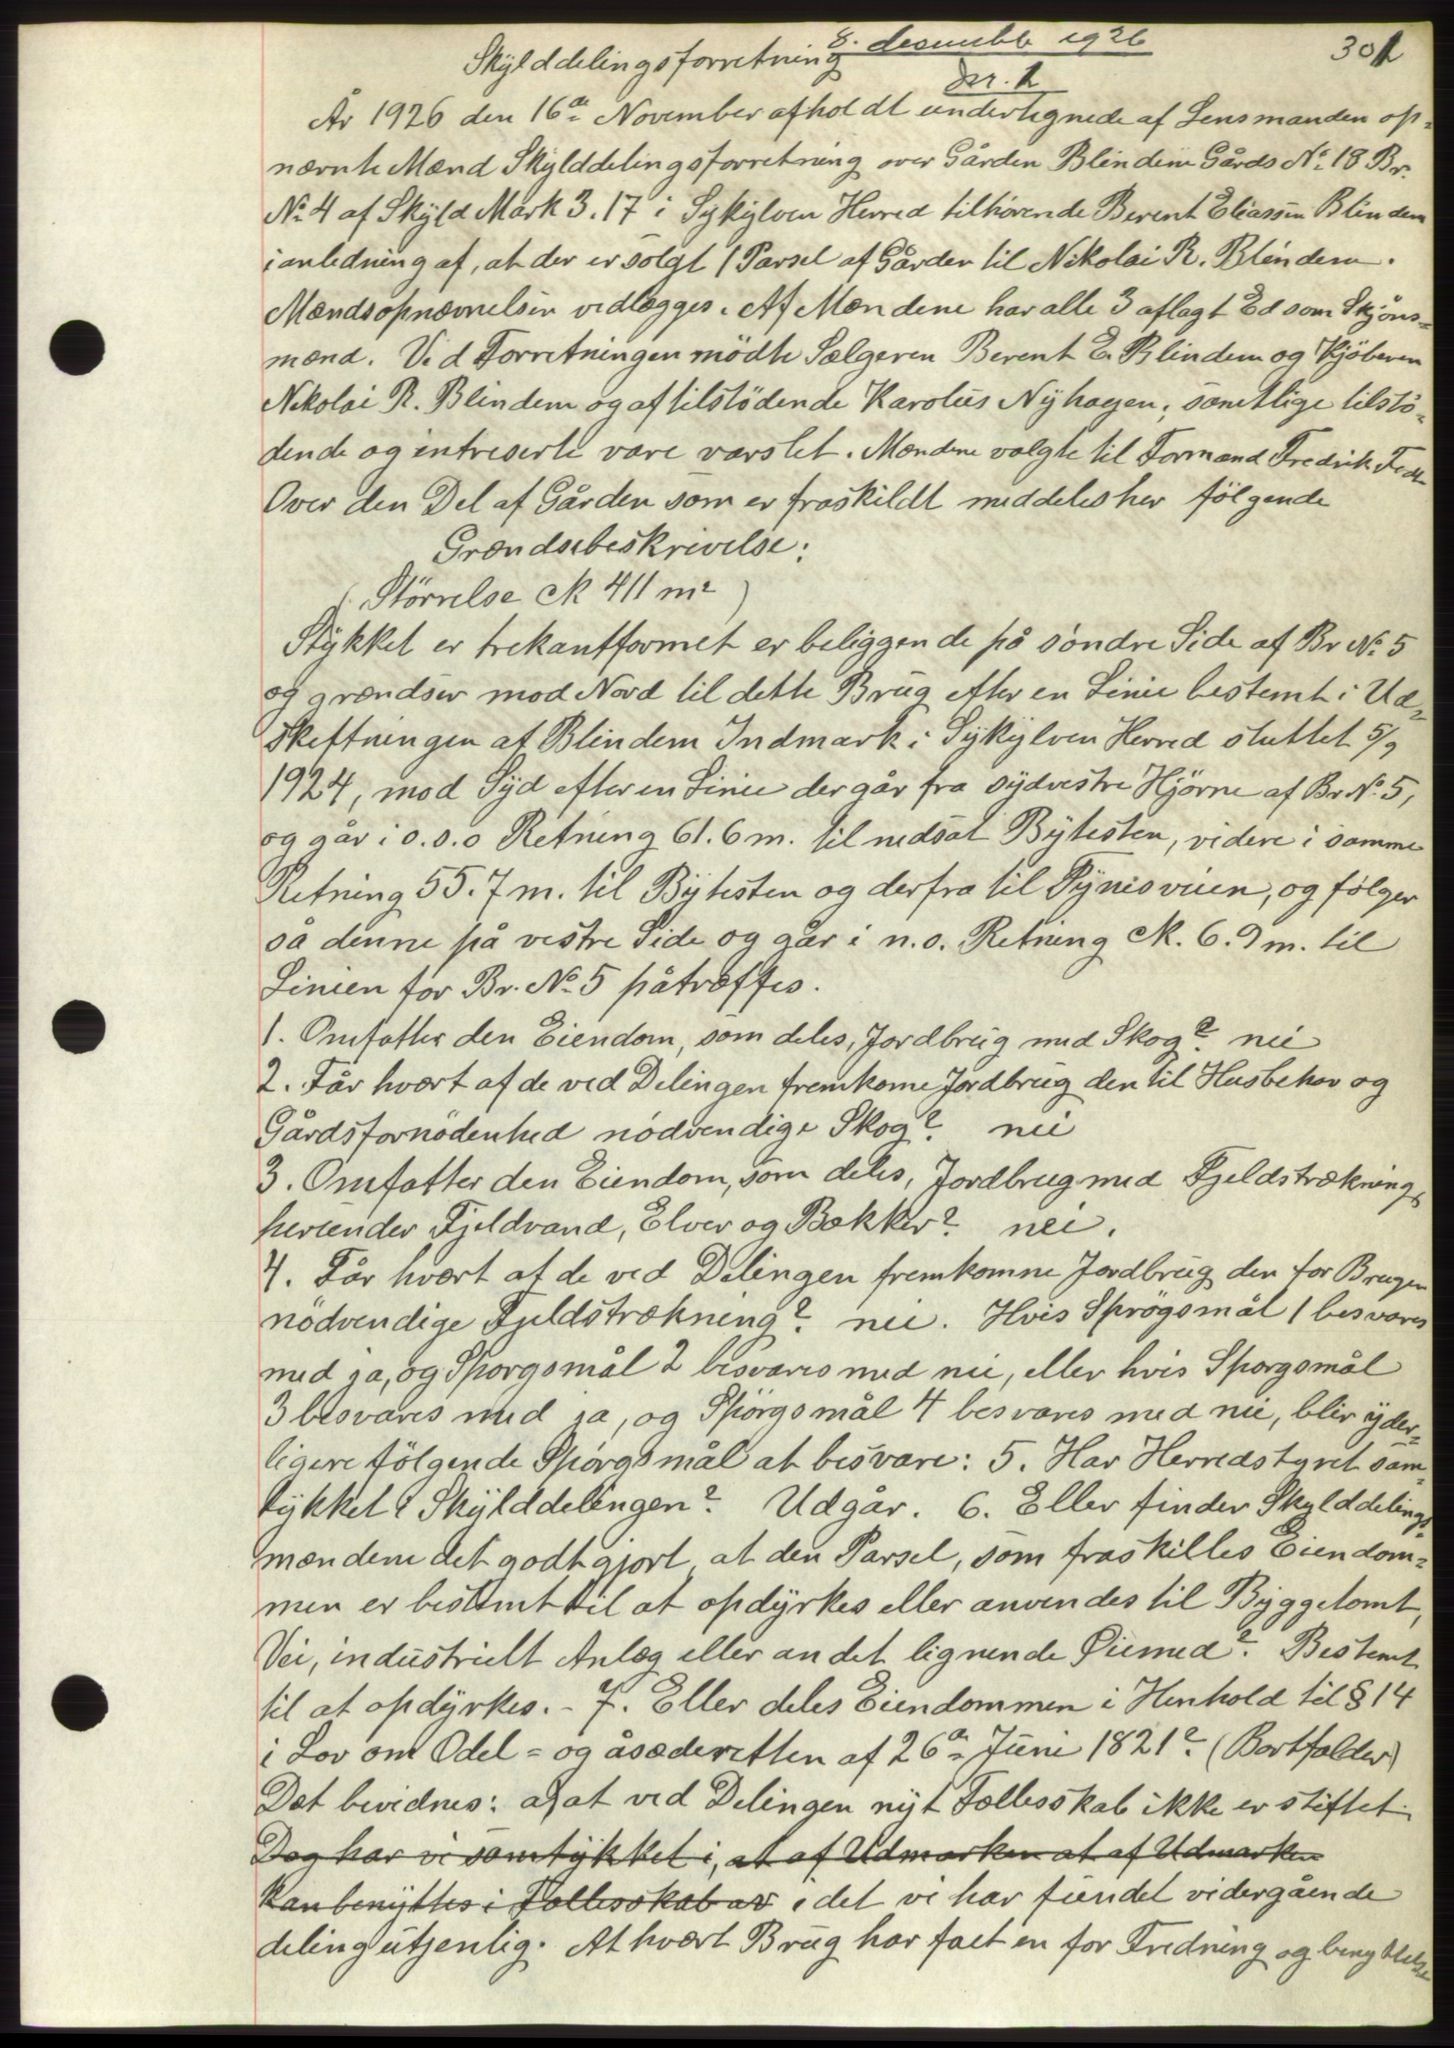 8. desembb 1926 301
Skylddelingsforretning nr. 1
År 1926 den 16de November afholdt undertegnede af Lensmanden op-
nævnte Mænd Skylddelingsforretning over Gården Blindem Gårds No 18 Br.
No 4 af Skyld Mark 3.17 i Sykylven Herred tilhørende Berent Eliassen Blindem
i anledning af, at der er solgt 1 Parsel af Gården til Nikolai R. Blindem.
Mændsopnævnelsen vedlægges. Af Mændene har alle 3 aflagt Ed som Skjøns-
mænd. Ved Forretningen mödte Sælgeren Berent E. Blindem og Kjöberen
Nikolai R. Blindem og af tilstödende Karolus Nyhagen; samtlige tilstö-
dende og intreserte vare varslet. Mændene valgte til Formand Fredrik
Over den Del af Gården som er fraskildt meddeles her fölgende
Grændsebeskrivelse:
(Störrelse ck 411 m²)
Stykket er trekantformet er beliggende på söndre Side af Br No 5
og grændser mod Nord til dette Brug efter en Linie bestemt i Ud-
skeftningen af Blindem Indmark i Sykylven Herred sluttet 5/9
1924, mod Syd efter en Linie der går fra sydvestre Hjörne af Br. No 5,
og går i o.s.o Retning 61.6 m. til nedsat Bytesten, videre i samme
Retning 55.7 m. til Bytesten og derfra til Tynesveien, og fölger
så denne på vestre Side og går i n.o. Retning ck. 6.9 m. til
Linien for Br. No 5 påtræffes.
1. Omfatter den Eiendom, som deles, Jordbrug med Skog? nei
2. Får hvært af de ved Delingen fremkome Jordbrug den til Husbehov og
Gårdsfornödenhed nödvendige Skog? nei
3. Omfatter den Eiendom, som deles, Jordbrug med Fjeldstrækning,
herunder Fjeldvand, Elver og Bækker? nei.
4. Får hvært af de ved Delingen fremkomne Jordbrug den for Brugen
nödvendige Fjeldstrækning? nei. Hvis Sprögsmål 1 besvares
med ja, og Sporgsmål 2 besvares med nei, eller hvis Sporgsmål
3 besvares med ja, og Spörgsmål 4 besvares med nei, blir yder-
ligere fölgende Spörgsmål at besvare: 5. Har Herredstyret sam-
tykket i Skylddelingen? Udgår. 6. Eller finder Skylddelings-
mændene det godtgjort, at den Parsel, som fraskilles Eiendom-
men er bestemt til at opdyrkes eller anvendes til Byggetomt,
Vei, industrielt Anlæg eller andet lignende Øiemed? Bestemt
til at opdyrkes. - 7. Eller deles Eiendommen i Henhold til § 14
i Lov om Odel- og åsæderetten af 26de Juni 1821? (Bortfalder)
Det bevidnes: a) at ved Delingen nyt Fællesskab ikke er stiftet.
Dog har vi samtykket i, at af Udmarken at af Udmarken
kan benyttes i Fællesskab av idet vi har fundet vidergående
deling utjenlig. At hvært Brug har faet en for Fredning og benyttelse